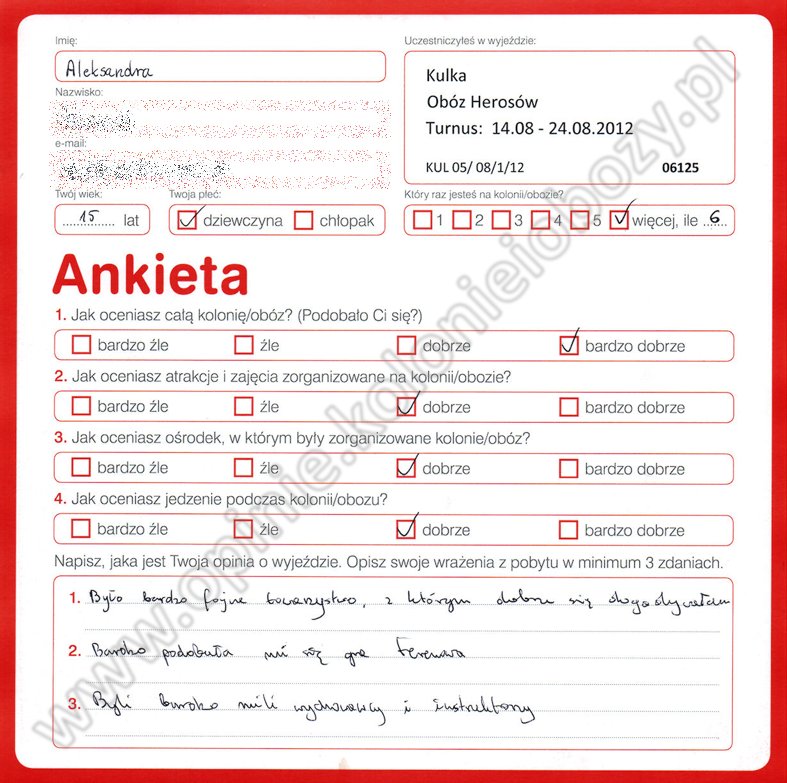 Imię:
Aleksandra
Uczestniczyłeś w wyjeździe:
Kulka
Obóz Herosów
Turnus: 14.08 - 24.08.2012
KUL 05/ 08/1/12 06125
Nazwisko:
e-mail:
Twój wiek:
15 lat
Twoja płeć:
dziewczyna chłopak
Który raz jesteś na kolonii/obozie?
1 2 3 4 5 więcej, ile 6
Ankieta
1. Jak oceniasz całą kolonię/obóz? (Podobało Ci się?)
bardzo źle źle dobrze bardzo dobrze
2. Jak oceniasz atrakcje i zajęcia zorganizowane na kolonii/obozie?
bardzo źle źle dobrze bardzo dobrze
3. Jak oceniasz ośrodek, w którym były zorganizowane kolonie/obóz?
bardzo źle źle dobrze bardzo dobrze
4. Jak oceniasz jedzenie podczas kolonii/obozu?
bardzo źle źle dobrze bardzo dobrze
Napisz, jaka jest Twoja opinia o wyjeździe. Opisz swoje wrażenia z pobytu w minimum 3 zdaniach.
1. Było bardzo fajne towarzystwo, z którym dobrze się dogadywałam
2. Bardzo podobała mi się gra terenowa
3. Byli bardzo mili wychowawcy i instruktorzy
www.opinie.kolonieiobozy.pl